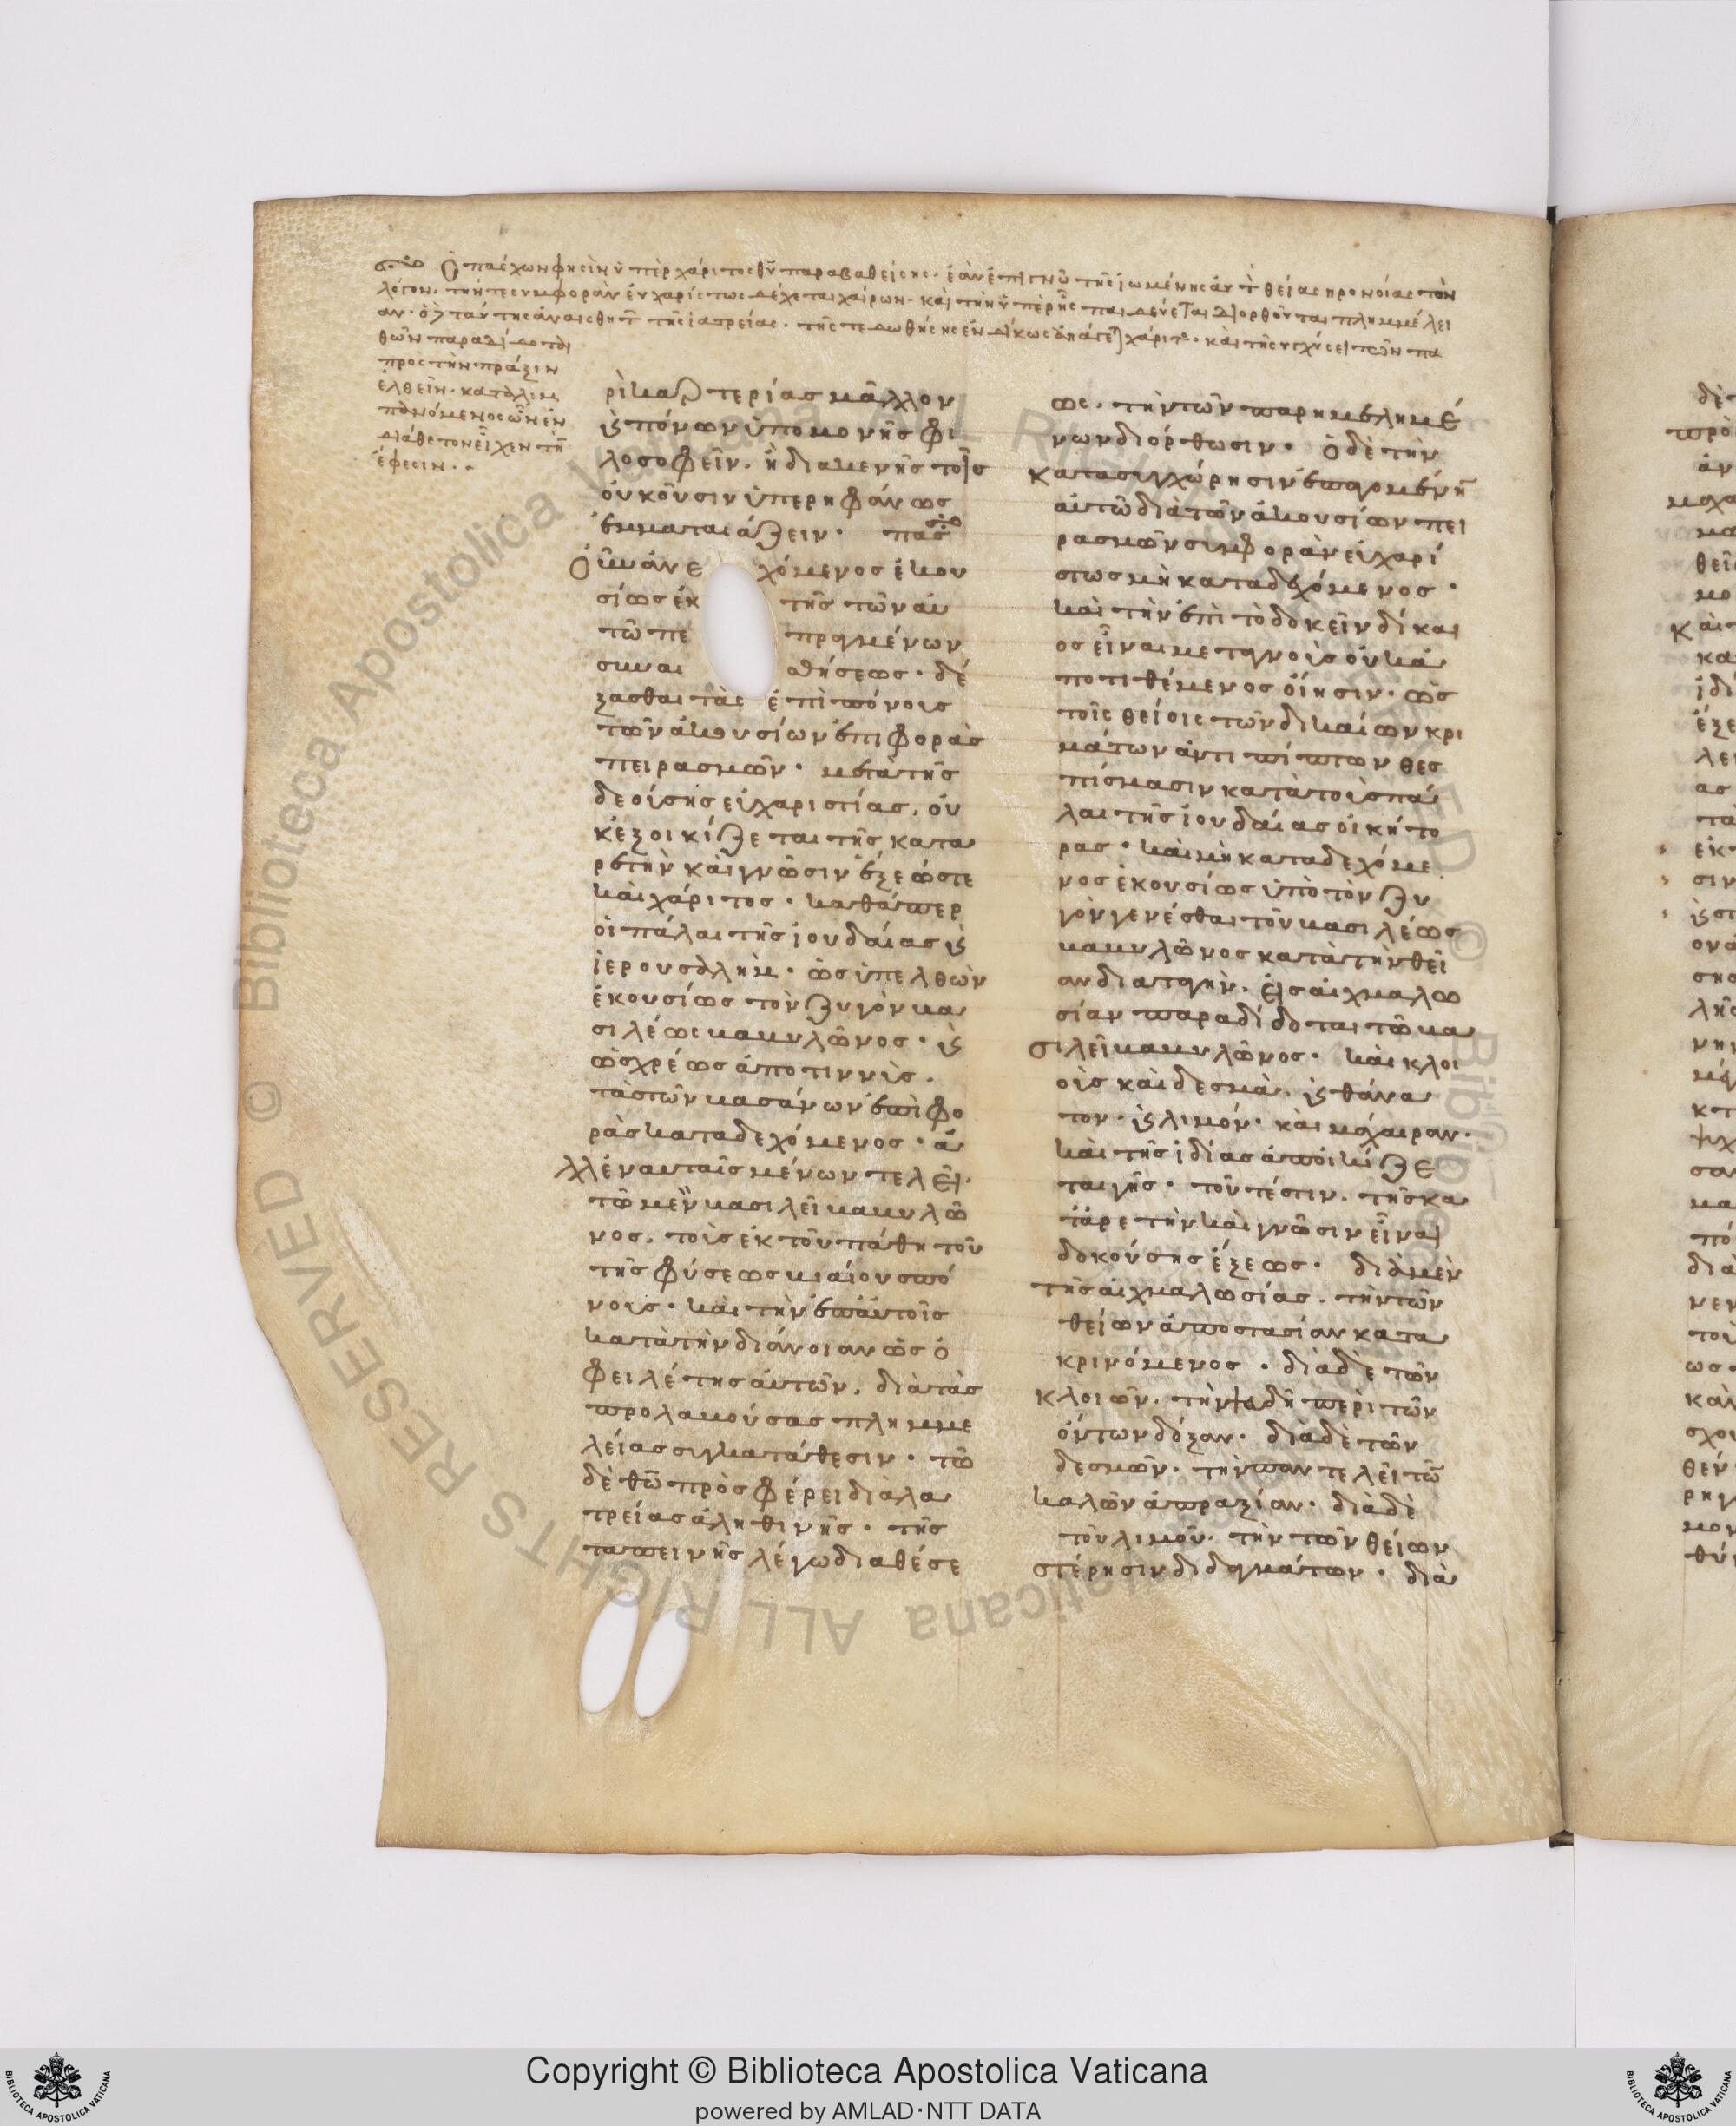 Ὁ πασχων φησὶν ὑπὲρ χάριτος θῦ παραβαθείσης· ἐὰν ἐπιγνῶ τῆς ἰωμένης αὐτ θείας προνοίας τὸν
λόγον· τήν τε συμφορὰν εὐχαρίστως δέχεται χαίρων· καὶ τὴν ὑπὲρ ἧς παιδεύεται διορθοῦται πλημμέλει
αν· ὁ
θῶν παραδίδοται
πρὸς τὴν πράξιν
ἐλθεῖν· καταλιμ
πανόμενος ὧν ἐν
διαθέτον εἶχεν τὴ
ἔφεσιν·
ρὶ καρτερίας μᾶλλον
κὶ πόνων ὑπομονῆς φι
λοσοφεῖν· ἢ διακενῆς τοῖς
οὐκ οὖσιν ὑπερηφάνως
ἐμματαιάζειν·
Ὁ μὴν ἀνεχόμενος ἑκου
σίως ἐκ τῆς τῶν αὐ
τῶ πεπραγμένων
συναισθήσεως· δέ
ξασθαι τὰς ἐπιπόνους
τῶν ἀκουσίων ἐπιφορὰς
πειρασμῶν· μετὰ τῆς
δεούσης εὐχαριστίας, οὐ
κ ἐξοικίζεται τῆς κατα
ρετὴν καὶ γνῶσιν ἕξεώς τε
καὶ χάριτος· καθάπερ
οἱ πάλαι τῆς ἰουδαίας κὶ
ἱερουσαλὴμ· ὡς ὑπελθὼν
ἑκουσίως τὸν ζυγὸν βα
σιλέως βαβυλῶνος· κὶ
ὡς χρέως ἀποτιννὺς·
τὰς τῶν βασάνων ἐπιφο
ρὰς καταδεχόμενος· ἀ
λλ ἐν αυταῖς μένων τελεῖ·
τῶ μὲν βασιλεῖ βαβυλῶ
νος· τοὺς ἐκ τοῦ παθητοῦ
τῆς φύσεως βιαίους πό
νους· καὶ τὴν ἐπ αὐτοῖς
κατὰ τὴν διάνοιαν ὡς ὀ
φειλέτης αὐτῶν· διὰ τὰς
προλαβούσας πλημμε
λείας συγκατάθεσιν· τῶ
δὲ θῶ προσφέρει διὰ λα
τρείας ἀληθινῆς· τῆς
ταπεινῆς λέγω διαθέσε
ως· τὴν τῶν παρημελημέ
νων διόρθωσιν· ὁ δὲ τὴν
κατὰ συγχώρησιν ἐπαγομένη
αὐτῶ διὰ τῶν ἀκουσίων πει
ρασμῶν συμφορὰν εὐχαρί
στως μὴ καταδεχόμενος·
καὶ τὴν ἐπὶ τὸ δοκεῖν δίκαι
ος εἶναι μεταγνοὺς οὐκ ἀ
ποτιθέμενος οἴησιν· ὡς
τοῖς θείοις τῶν δικαίων κρι
μάτων ἀντιπίπτων θεσ
πίσμασιν κατὰ τοὺς πά
λαι τῆς ἰουδαίας οἰκήτο
ρας· καὶ μὴ καταδεχόμε
νος ἑκουσίως ὑπὸ τὸν ζυ
γὸν γενέσθαι τοῦ βασιλέως
βαβυλῶνος κατὰ τὴν θεί
αν διαταγὴν· εἰς αἰχμαλω
σίαν παραδίδοται τῶ βα
σιλεῖ βαβυλῶνος· καὶ κλοι
οὶς καὶ δεσμὰ· κὶ θάνα
τον· κὶ λιμόν· καὶ μάχαιραν·
καὶ τῆς ἰδίας ἀποικίζε
ται γῆς· τοῦτέστιν· τῆς κα
τ ἀρετὴν καὶ γνῶσιν εἶναι
δοκούσης ἕξεως· διὰ μὲν
τῆς αἰχμαλωσίας· τὴν τῶν
θείων ἀποστασίαν κατα
κρινόμενος· διὰ δὲ τῶν
κλοιῶν· τὴν ψευδῆ περὶ τῶν
ὄντων δόξαν· διὰ δὲ τῶν
δεσμῶν· τὴν παντελεῖ τῶ
καλῶν ἀπραξίαν· διὰ δὲ
τοῦ λιμοῦ· τὴν τῶν θείων
στέρησιν διδαγμάτων· διὰ
Copyright © Biblioteca Apostolica Vaticana
powered by AMLAD·NTT DATA